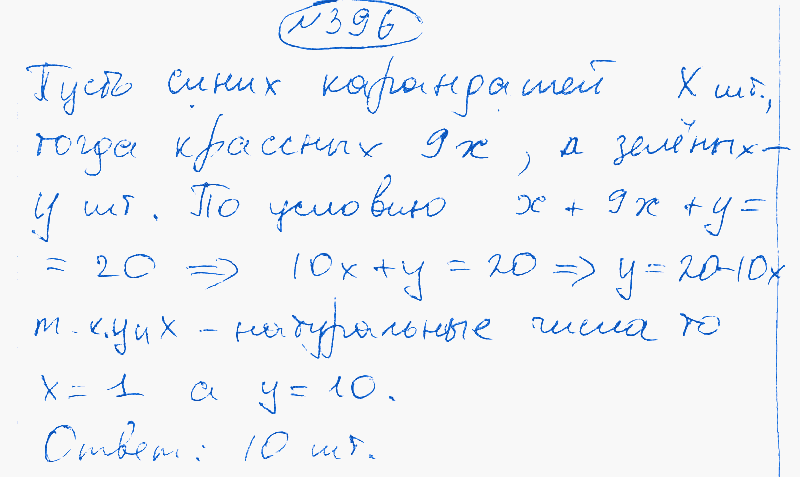 №396
Пусть синих карандашей X шт.,
тогда красных 9x, а зелёных –
y шт. По условию x + 9x + y =
= 20 => 10x + y = 20 => y = 20-10x
т.к. y и x – натуральные числа то
x = 1 а y = 10.
Ответ: 10 шт.